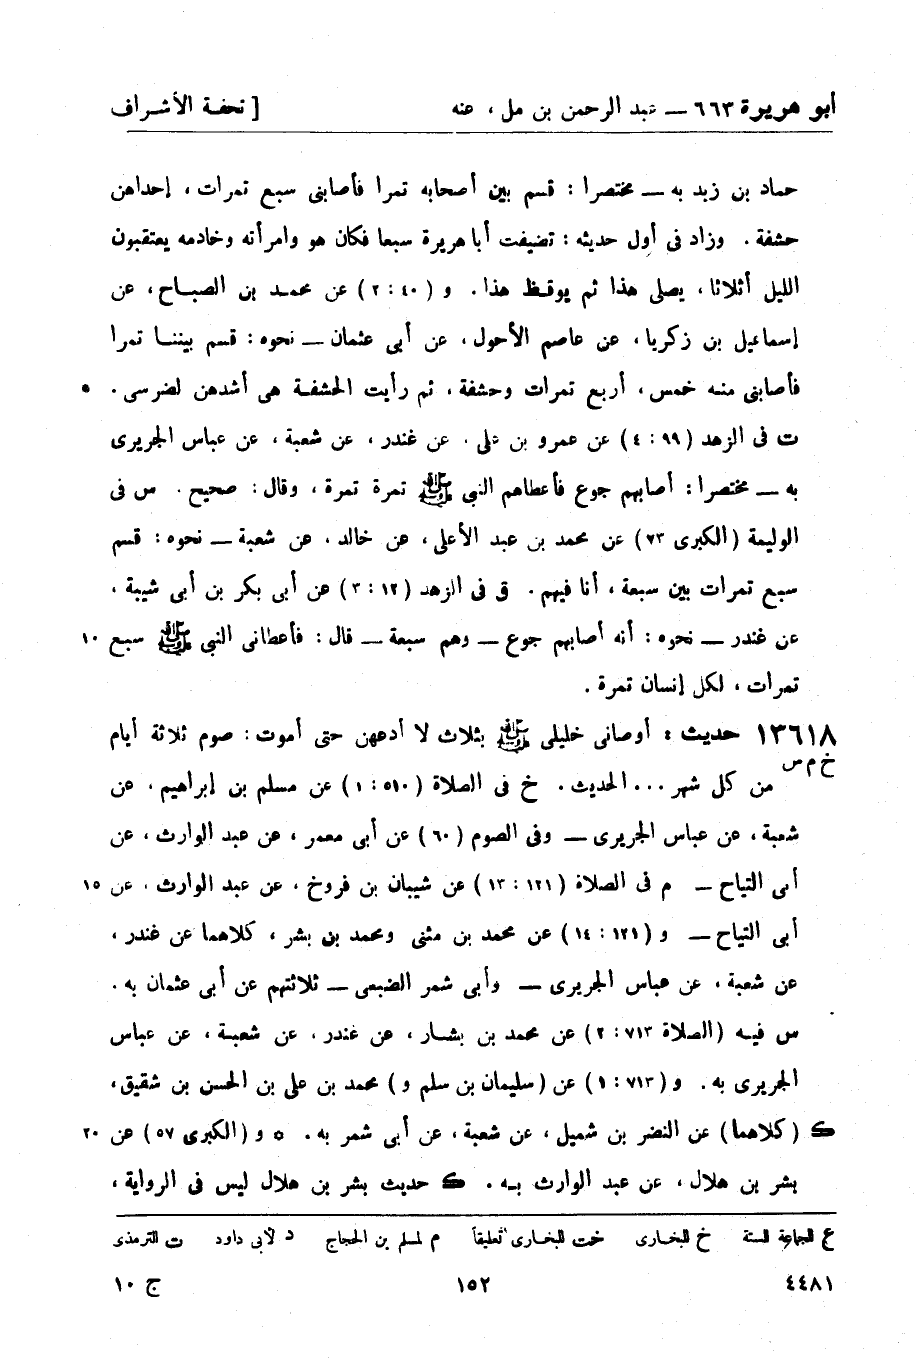 أبو هريرة ٦٦٣ ــ عبد الرحمن بن مل ، عنه [ تحفة الأشراف
حماد بن زيد به ــ مختصرا : قسم بين أصحابه تمرا فأصابنى سبع تمرات ، إحداهن
حشفة . وزاد فى أول حديثه : تضيفت أبا هريرة سبعا فكان هو وامرأته وخادمه يعتقبون
الليل أثلاثا ، يصلى هذا ثم يوقظ هذا . و ( ٤٠ : ٢ ) عن محمد بن الصباح ، عن
إسماعيل بن زكريا ، عن عاصم الأحول ، عن أبى عثمان ــ نحوه : قسم بيننا تمرا
فأصابنى منه خمس ، أربع تمرات وحشفة ، ثم رأيت الحشفة هى أشدهن لضرسى . ٥
ت فى الزهد ( ٩٩ : ٤ ) عن عمرو بن على . عن غندر ، عن شعبة ، عن عباس الجريرى
به ــ مختصرا : أصابهم جوع فأعطاهم النبى ﷺ تمرة تمرة ، وقال : صحيح . س فى
الوليمة ( الكبرى ٧٣ ) عن محمد بن عبد الأعلى ، عن خالد ، عن شعبة ــ نحوه : قسم
سبع تمرات بين سبعة ، أنا فيهم . ق فى الزهد ( ١٢ : ٣ ) عن أبى بكر بن أبى شيبة ،
عن غندر ــ نحوه : أنه أصابهم جوع ــ وهم سبعة ــ قال : فأعطانى النبى ﷺ سبع ١٠
تمرات ، لكل إنسان تمرة .
١٣٦١٨ حديث : أوصانى خليلى ﷺ بثلاث لا أدعهن حتى أموت : صوم ثلاثة أيام
خ م س من كل شهر ... الحديث . خ فى الصلاة ( ٥١٠ : ١ ) عن مسلم بن إبراهيم ، عن
شعبة ، عن عباس الجريرى ــ وفى الصوم ( ٦٠ ) عن أبى معمر ، عن عبد الوارث ، عن
أبى التياح ــ م فى الصلاة ( ١٢١ : ١٣ ) عن شيبان بن فروخ ، عن عبد الوارث ، عن ١٥
أبى التياح ــ و ( ١٢١ : ١٤ ) عن محمد بن مثنى ومحمد بن بشر ، كلاهما عن غندر ،
عن شعبة ، عن عباس الجريرى ــ وأبى شمر الضبعى ــ ثلاثتهم عن أبى عثمان به .
س فيه ( الصلاة ٧١٣ : ٢ ) عن محمد بن بشار ، عن غندر ، عن شعبة ، عن عباس
الجريرى به . و ( ٧١٣ : ١ ) عن ( سليمان بن سلم و ) محمد بن على بن الحسن بن شقيق ،
ك ( كلاهما ) عن النضر بن شميل ، عن شعبة ، عن أبى شمر به . * و ( الكبرى ٥٧ ) عن ٢٠
بشر بن هلال ، عن عبد الوارث به . ك حديث بشر بن هلال ليس فى الرواية ،
ع للجماعة الستة خ للبخارى خت للبخارى تعليقاً م لمسلم بن الحجاج د لأبى داود ت للترمذى
٤٤٨١ ١٥٢ ج ١٠